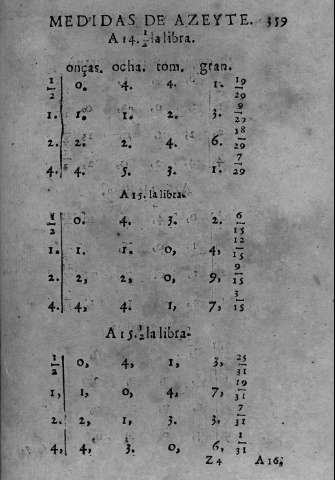 MEDIDAS DE AZEYTE. 359
A 14. 1/2 la libra.
onças. ocha. tom. gran.
1/2 0. 4. 4. 1. 19/29
1. 1. 1. 2. 3. 9/29
2. 2. 2. 4. 6. 18/29
4. 4. 5. 3. 1. 7/29
A 15. la libra.
1/2 0. 4. 3. 2. 6/15
1. 1. 1. 0, 4, 12/15
2. 2, 2, 0, 9, 9/15
4. 4, 4. 1, 7, 3/15
A 15. 1/2 la libra.
1/2 0, 4, 1, 3, 25/31
1, 1, 0, 4, 7, 19/31
2. 2, 1, 3. 3. 7/31
4, 4, 3. 0, 6, 1/31
Z 4 A 16,